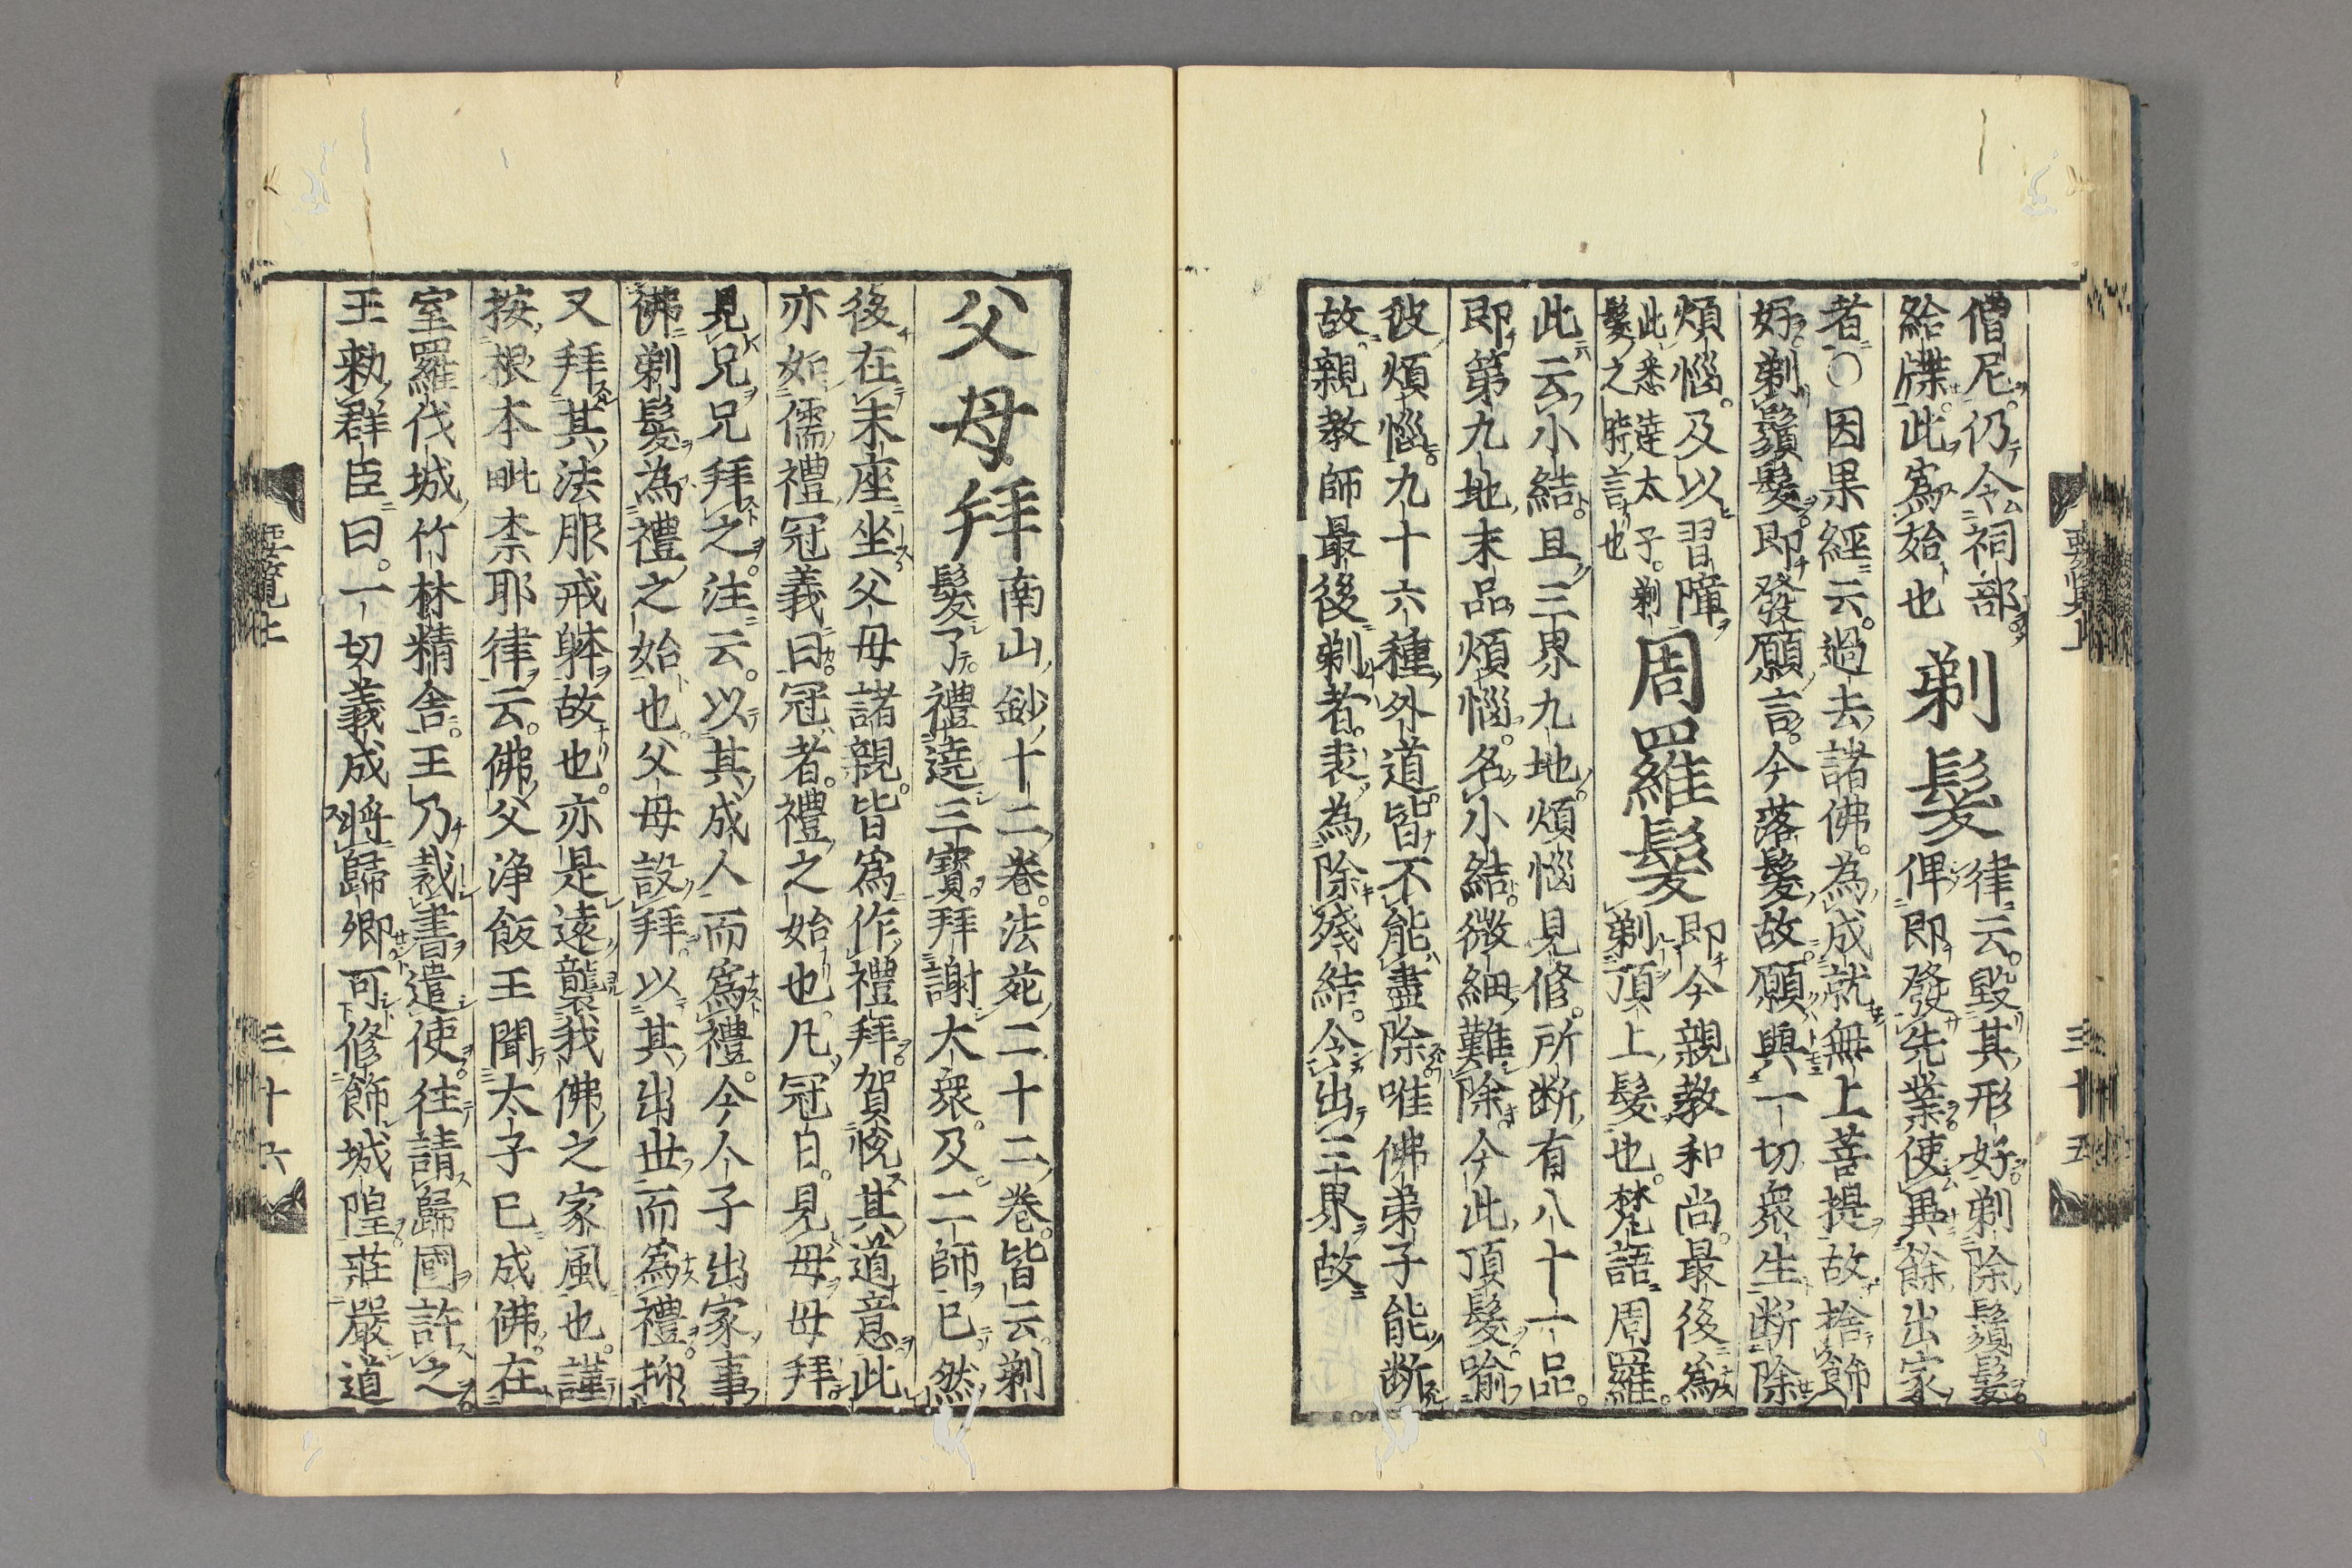 僧尼仍令祠部
給牒此爲始也
剃髮
律云毀其形好剃除鬚髮
俾即發先業使異餘出家
者〇因果經云過去諸佛為成就無上菩提故捨飾
好剃鬚髮即發願言今落髮故願與一切衆生断除
煩惱及以習障
此悉達太子剃
髮之時言也
周羅髮
即今親教和尚最後爲
剃頂上髮也梵語周羅
此云小結且三界九地煩惱見修所断有八十一品
即第九地末品煩惱名小結微細難除今此頂髮喻
彼煩惱九十六種外道皆不能盡除唯佛弟子能断
故親教師最後剃者表為除殘結令出三界故
要覧上
三十五
父母拜
南山鈔十二卷法苑二十二卷皆云剃
髮了禮遶三寶拜謝大衆及二師已然
後在末座坐父母諸親皆爲作禮拜賀悅其道意此
亦如儒禮冠義曰冠者禮之始也凡冠白見母母拜
見兄兄拜之注云以其成人而爲禮今人子出家事
佛剃髮為禮之始也父母設拜以其出世而爲禮抑
又拜其法服戒躰故也亦是遠襲我佛之家風也謹
按根本毗柰耶律云佛父浄飯王聞太子已成佛在
室羅伐城竹林精舎王乃裁書遣使往請歸國許之
王勑群臣曰一切義成將歸卿可修飾城隍莊嚴道
要覧上
三十六